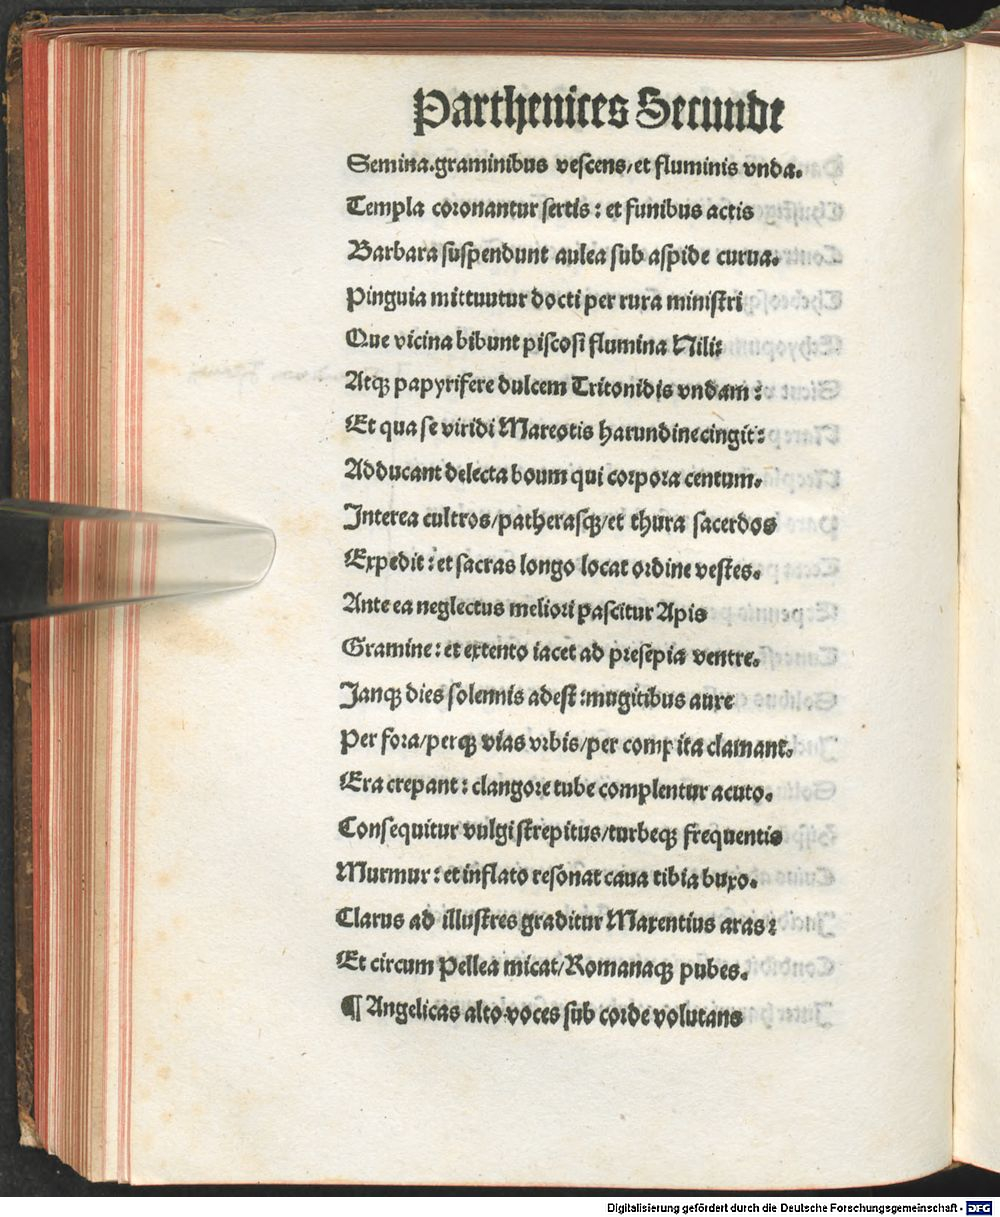 Parthenices Secunde
Semina.graminibus vescens/et fluminis vnda.
Templa coronantur sertis: et funibus actis
Barbara suspendunt aulea sub aspide curua.
Pinguia mittuutur docti per rura ministri
Que vicina bibunt piscosi flumina Nili:
Atqꝫ papyrifere dulcem Tritonidis vndam:
Et qua se viridi Mareotis harundine cingit:
Adducant delecta boum qui corpora centum.
Interea cultros/patherasqꝫ/et thura sacerdos
Expedit: et sacras longo locat ordine vestes.
Ante ea neglectus meliori pascitur Apis
Gramine: et extento iacet ad presepia ventre.
Janqꝫ dies solennis adest: mugitibus aure
Per fora/perqꝫ vias vrbis/per compita clamant.
Era crepant: clangore tube complentur acuto.
Consequitur vulgi strepitus/turbeqꝫ frequentis
Murmur: et inflato resonat caua tibia buxo.
Clarus ad illustres graditur Maxentius aras:
Et circum Pellea micat/Romanaqꝫ pubes.
¶ Angelicas alto voces sub corde volutans
Digitalisierung gefördert durch die Deutsche Forschungsgemeinschaft - DFG